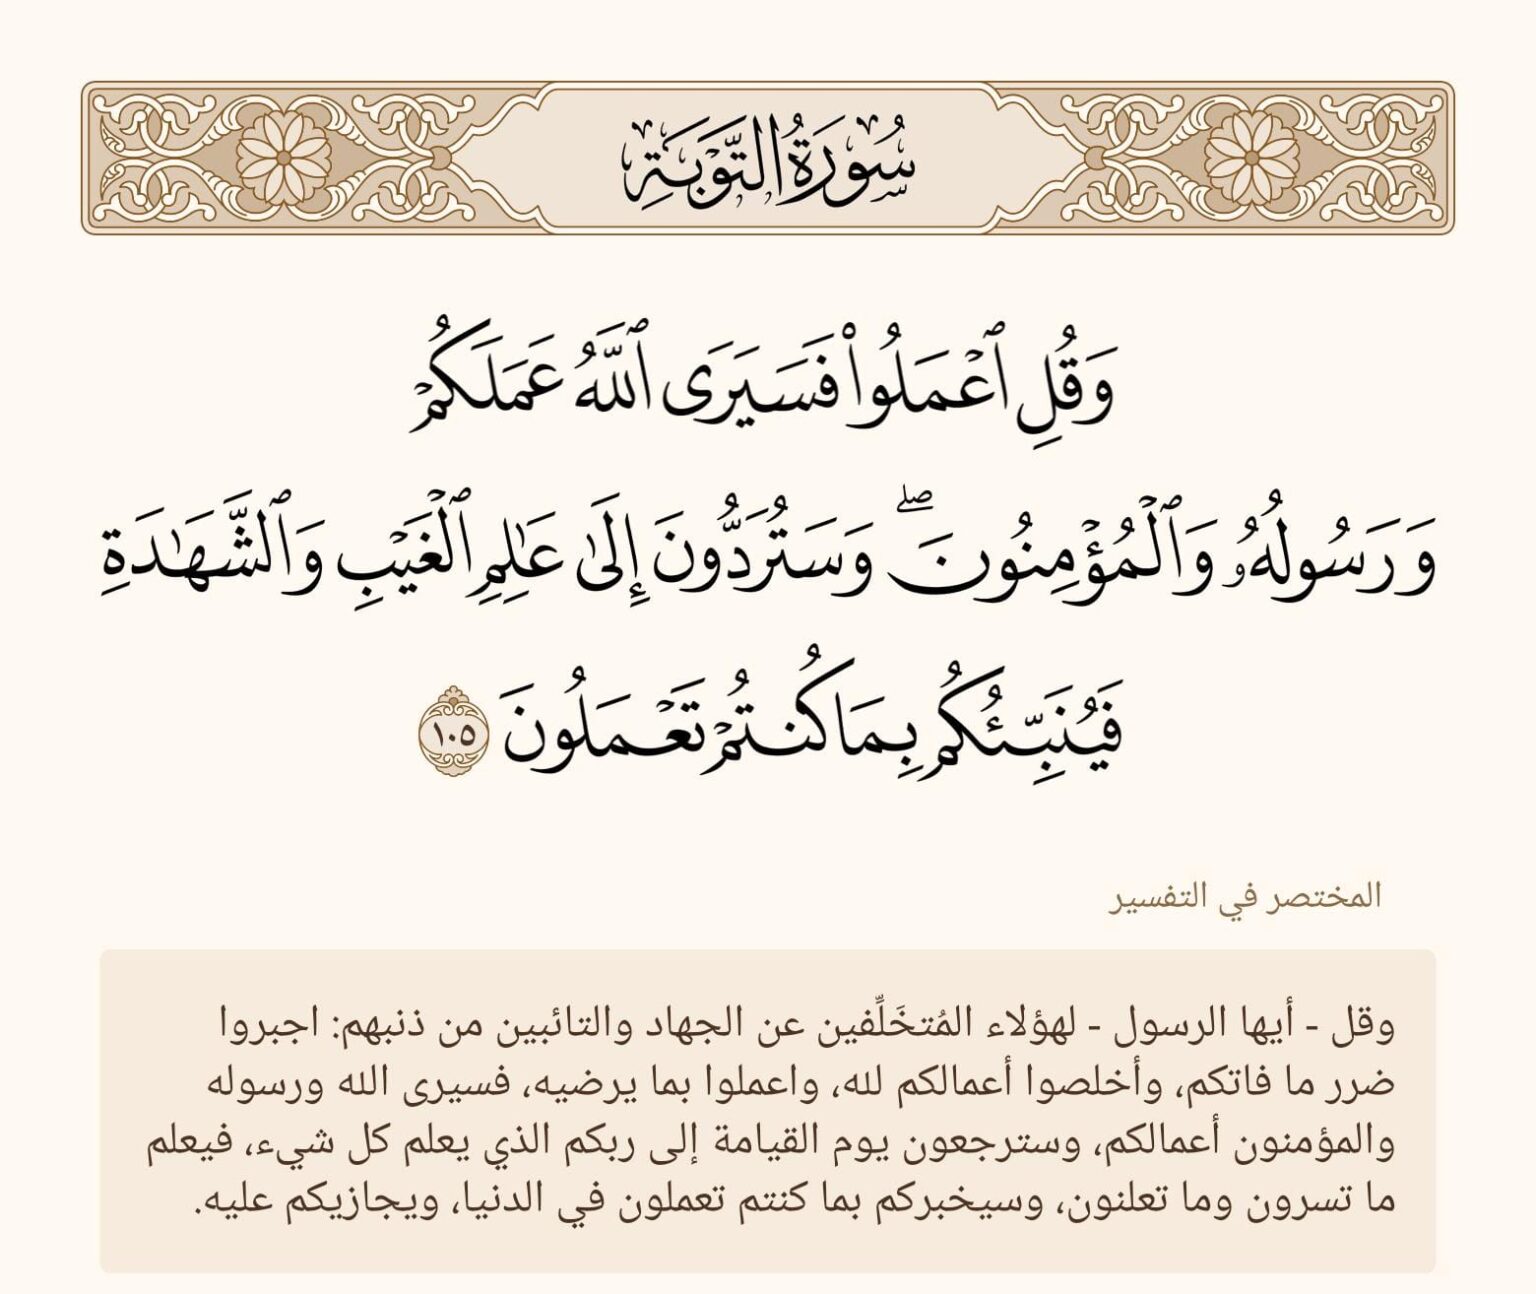 سُورَةُ التَّوْبَةِ
وَقُلِ ٱعْمَلُوا۟ فَسَيَرَى ٱللَّهُ عَمَلَكُمْ
وَرَسُولُهُۥ وَٱلْمُؤْمِنُونَ ۖ وَسَتُرَدُّونَ إِلَىٰ عَـٰلِمِ ٱلْغَيْبِ وَٱلشَّهَـٰدَةِ
فَيُنَبِّئُكُم بِمَا كُنتُمْ تَعْمَلُونَ ١٠٥
المختصر في التفسير
وقل - أيها الرسول - لهؤلاء المُتخَلِّفين عن الجهاد والتائبين من ذنبهم: اجبروا
ضرر ما فاتكم، وأخلصوا أعمالكم لله، واعملوا بما يرضيه، فسيرى الله ورسوله
والمؤمنون أعمالكم، وسترجعون يوم القيامة إلى ربكم الذي يعلم كل شيء، فيعلم
ما تسرون وما تعلنون، وسيخبركم بما كنتم تعملون في الدنيا، ويجازيكم عليه.